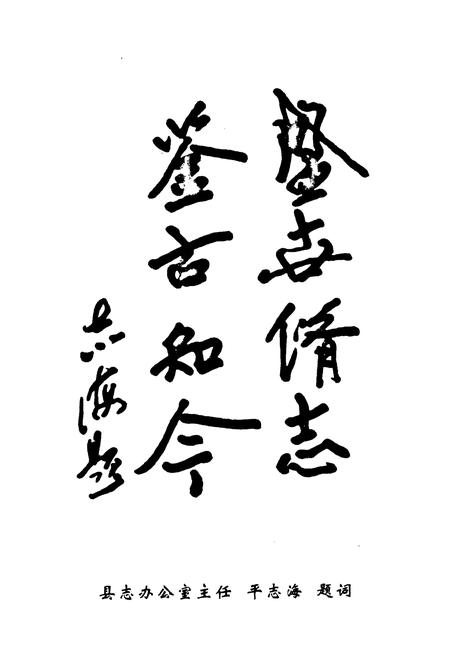 盛世脩志
鉴古知今
志海题
县志办公室主任 平志海 题词